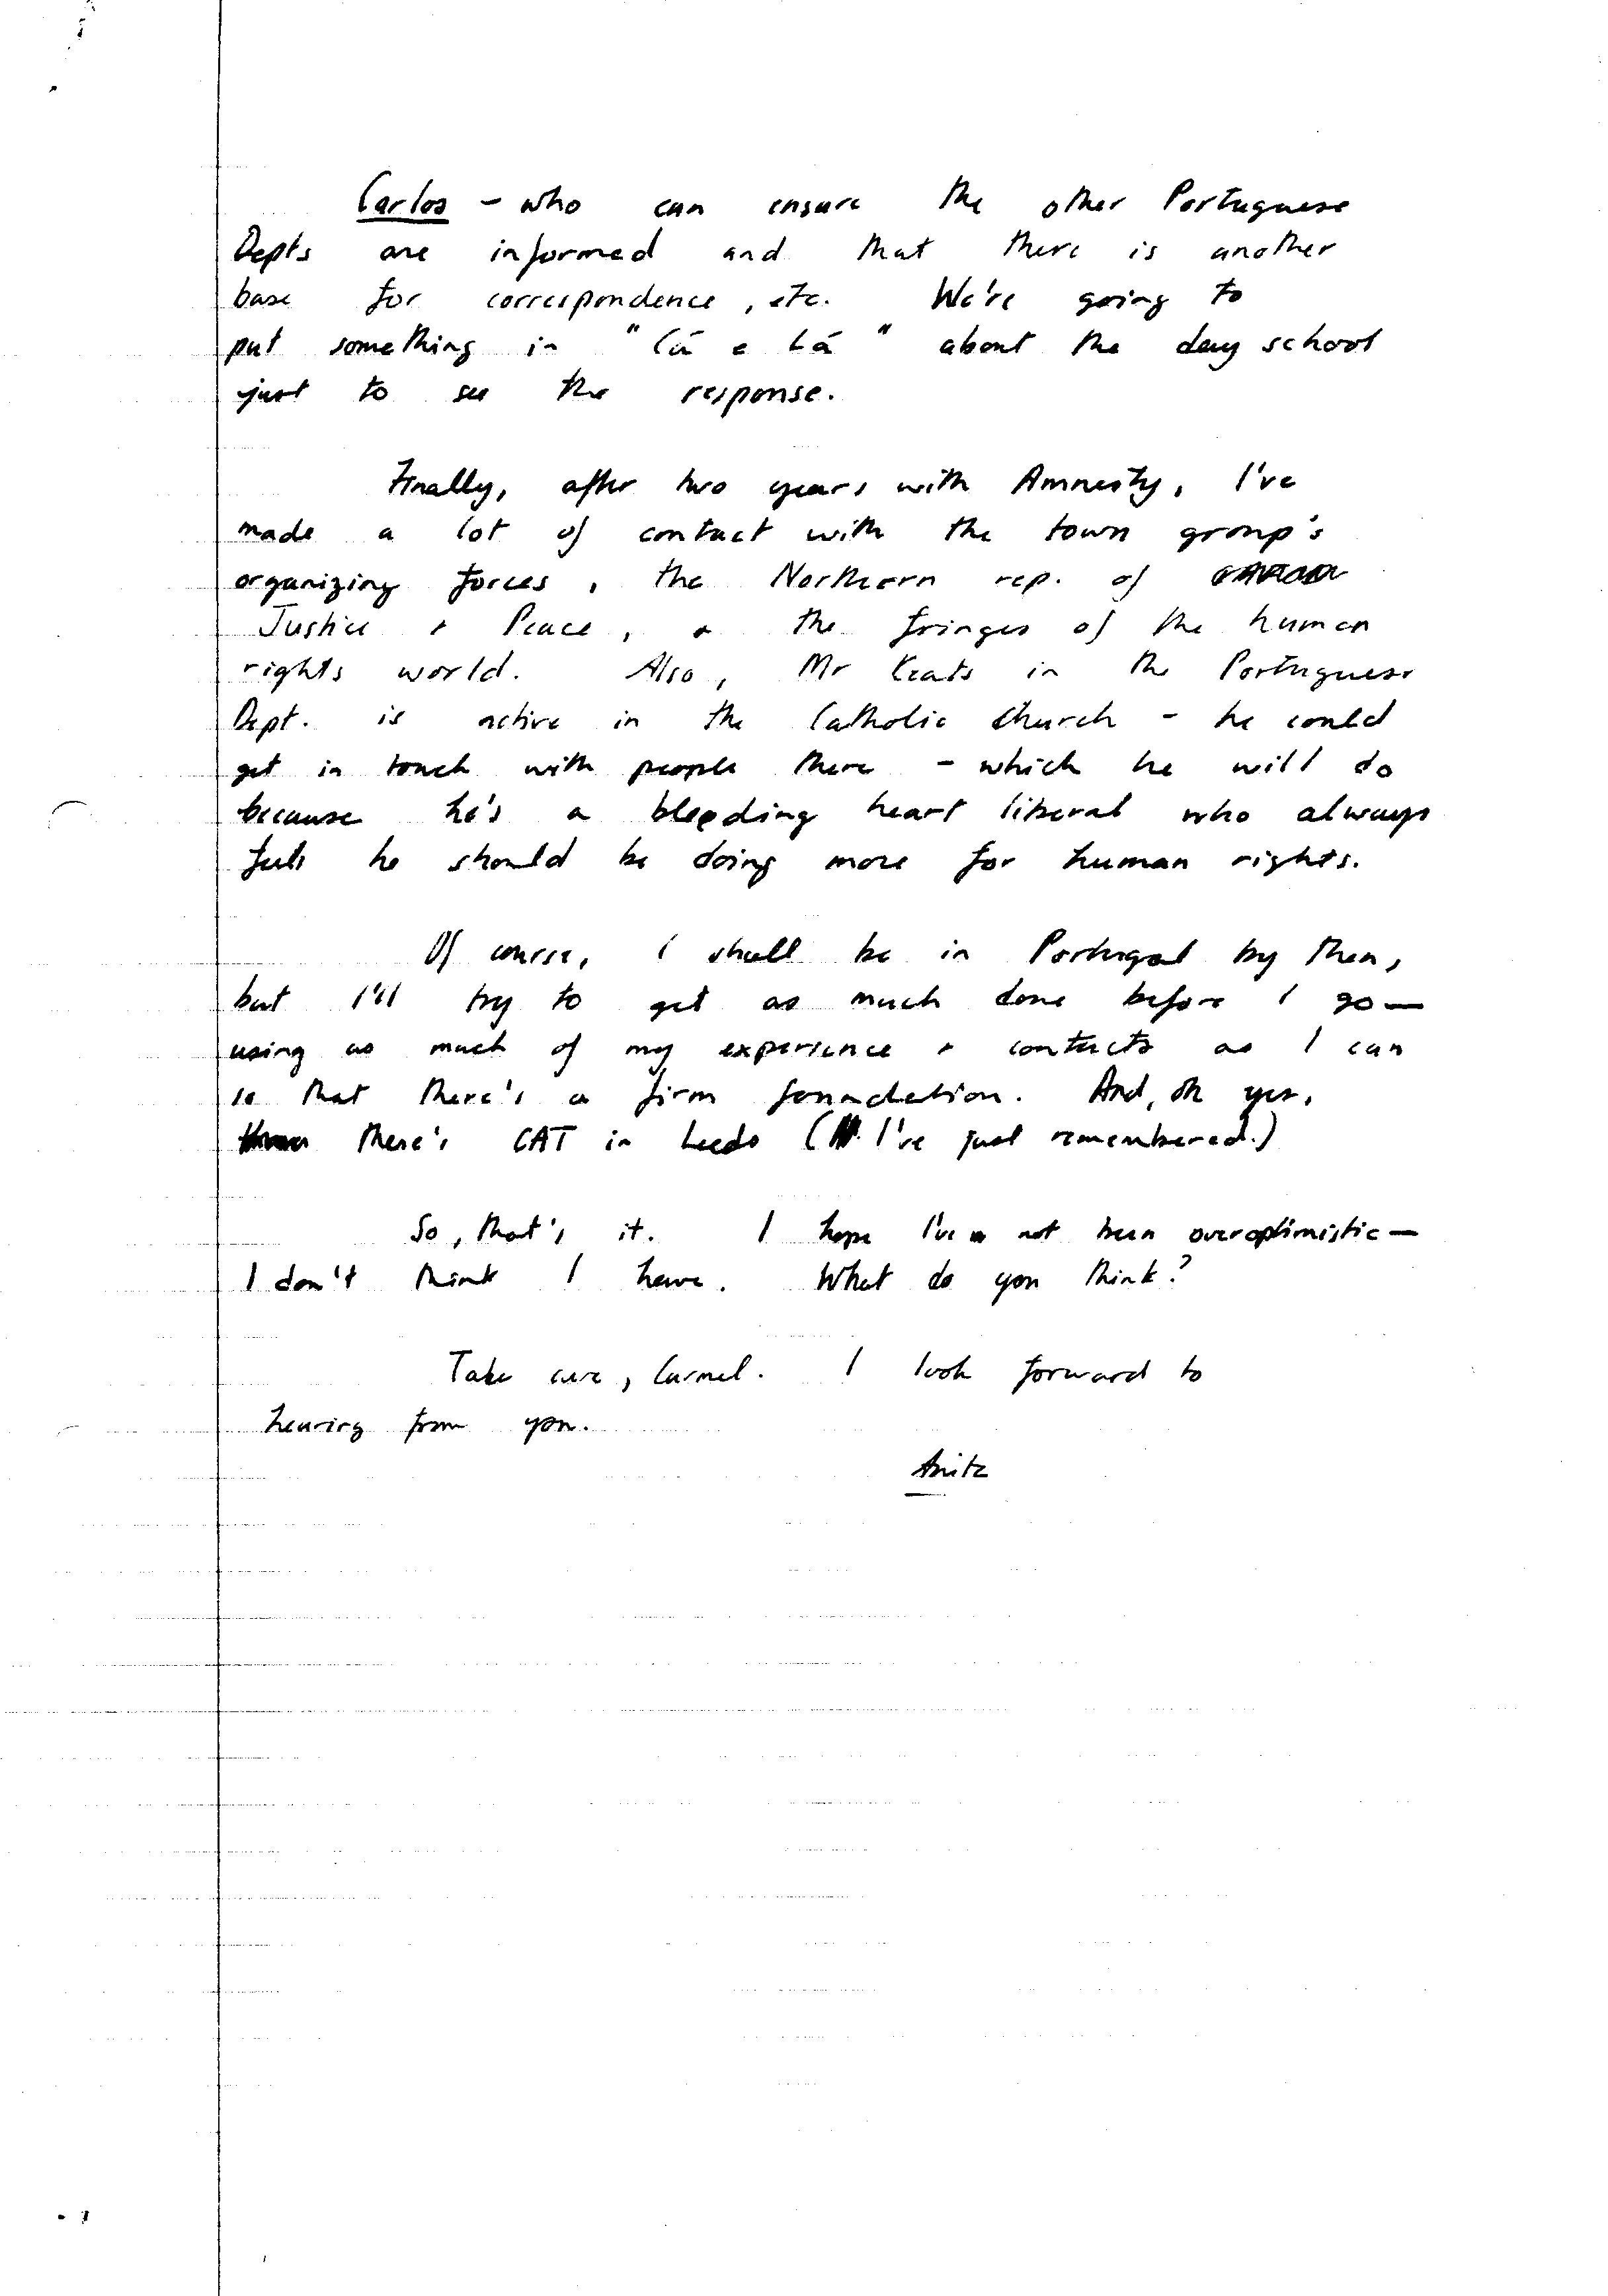 Carlos - who can ensure the other Portuguese
Depts are informed and that there is another
base for correspondence, etc. We're going to
put something in "Cá e Lá" about the day school
just to see the response.
Finally, after two years with Amnesty, I've
made a lot of contact with the town group's
organizing forces, the Northern rep. of
Justice + Peace, + the fringes of the human
rights world. Also, Mr Keats in the Portuguese
Dept. is active in the Catholic Church - he could
get in touch with people there - which he will do
because he's a bleeding heart liberal who always
feels he should be doing more for human rights.
Of course, I shall be in Portugal by then,
but I'll try to get as much done before I go —
using as much of my experience + contacts as I can
so that there's a firm foundation. And, oh yes,
there's CAT in Leeds (I've just remembered.)
So, that's it. I hope I've not been overoptimistic —
I don't think I have. What do you think?
Take care, Carmel. I look forward to
hearing from you.
Anita